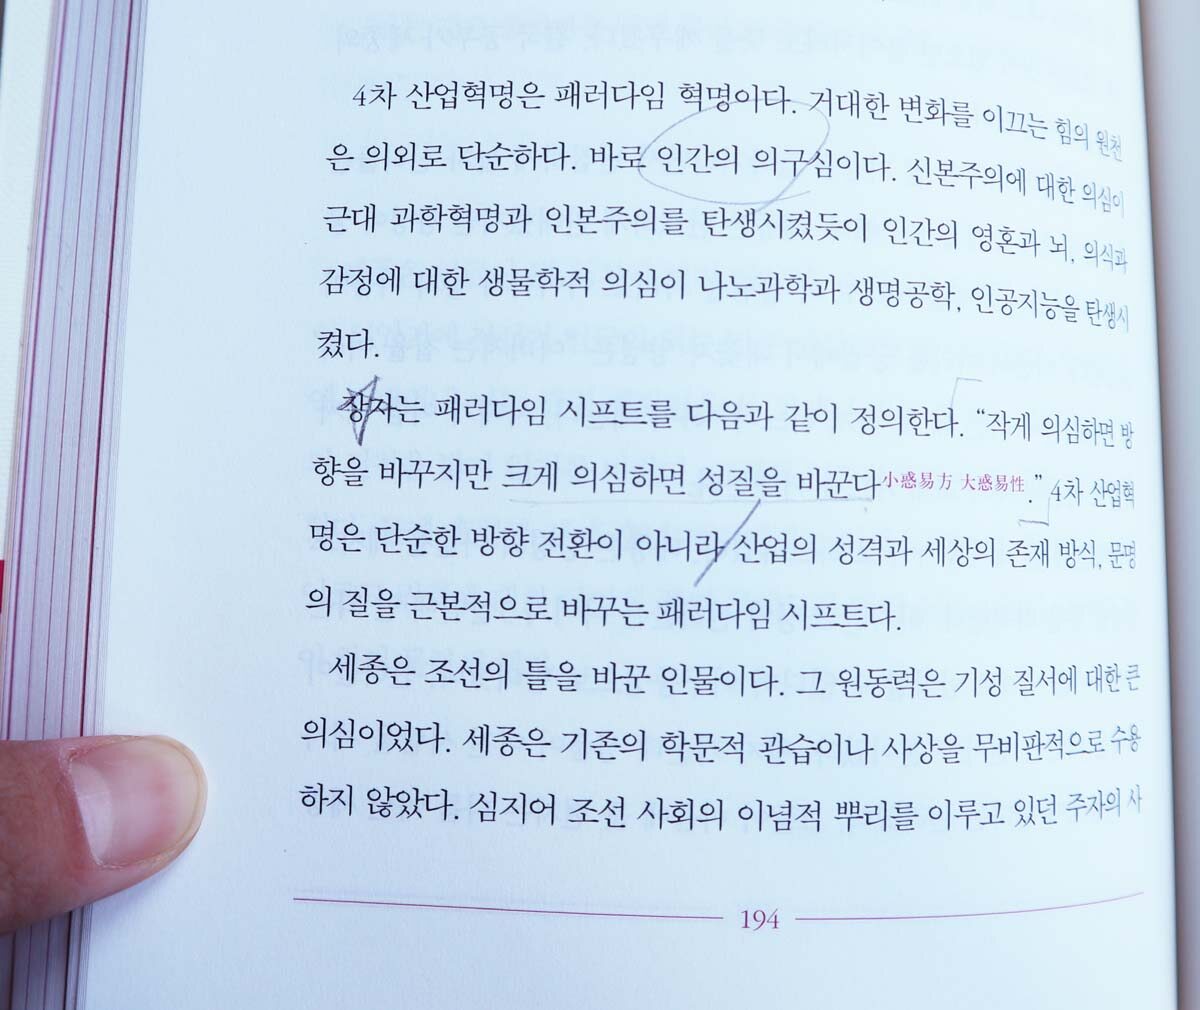 4차 산업혁명은 패러다임 혁명이다. 거대한 변화를 이끄는 힘의 원천
은 의외로 단순하다. 바로 인간의 의구심이다. 신본주의에 대한 의심이
근대 과학혁명과 인본주의를 탄생시켰듯이 인간의 영혼과 뇌, 의식과
감정에 대한 생물학적 의심이 나노과학과 생명공학, 인공지능을 탄생시
켰다.
장자는 패러다임 시프트를 다음과 같이 정의한다. “작게 의심하면 방
향을 바꾸지만 크게 의심하면 성질을 바꾼다小惑易方 大惑易性.” 4차 산업혁
명은 단순한 방향 전환이 아니라 산업의 성격과 세상의 존재 방식, 문명
의 질을 근본적으로 바꾸는 패러다임 시프트다.
세종은 조선의 틀을 바꾼 인물이다. 그 원동력은 기성 질서에 대한 큰
의심이었다. 세종은 기존의 학문적 관습이나 사상을 무비판적으로 수용
하지 않았다. 심지어 조선 사회의 이념적 뿌리를 이루고 있던 주자의 사
194